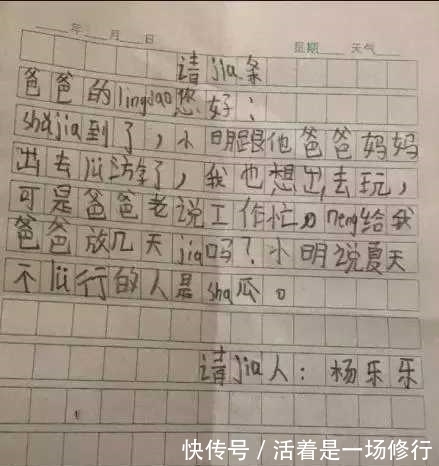 年 月 日 星期 天气
请jia条
爸爸的lingdao您好:
shǔjia到了,小明跟他爸爸妈妈
出去lǚ游了,我也想出去玩,
可是爸爸老说工作忙。neng给我
爸爸放几天jia吗?小明说夏天
不lǚ行的人是sha瓜。
请jia人:杨乐乐
快传号/活着是一场修行